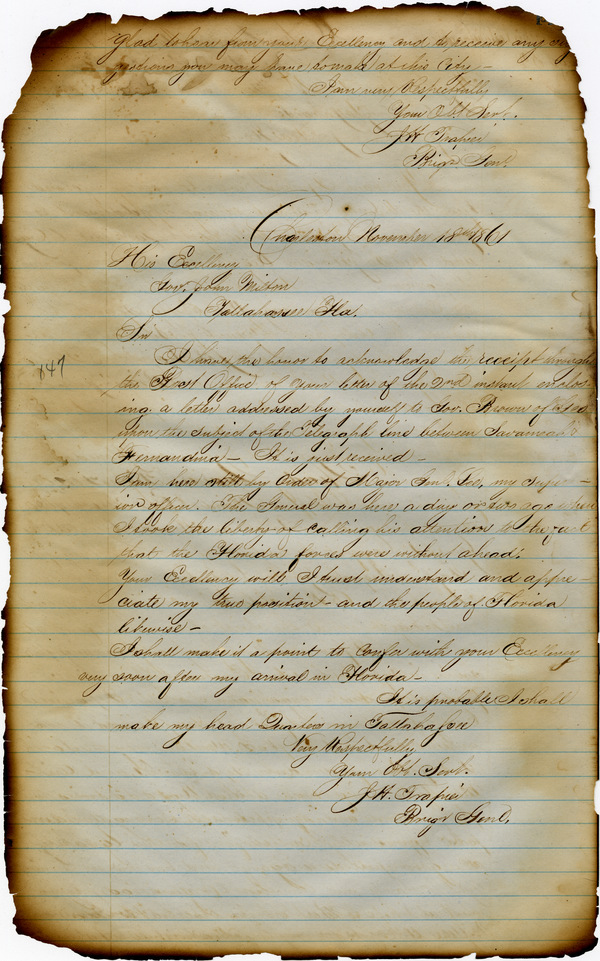 Glad to hear from your Excellency and to receive any sug
gestions you may have to make at this
I am very Respectfully
Your Obt Servt.
J H Trapier
Brigr Genl.
Charleston November 18th 1861
His Excellency
Gov. John Milton
Tallahassee Fla.
Sir
I have the honor to acknowledge the receipt through
the Post Office of your letter of the 2nd instant enclos-
ing a letter addressed by yourself to Gov. Brown of Geo
upon the subject of the Telegraph line between Savannah &
Fernandina — It is just received —
I am here still by order of Major Genl. Lee, my supe-
rior officer. The General was here a day or two ago when
I took the liberty of calling his attention to the fact
that the Florida forces were without a head.
Your Excellency will, I trust understand and appre-
ciate my true position — and the people of Florida
likewise —
I shall make it a point to confer with your Excellency
very soon after my arrival in Florida —
It is probable I shall
make my head Quarters in Tallahassee
Very Respectfully
Your Obt. Servt.
J. H. Trapier
Brigr Genl.